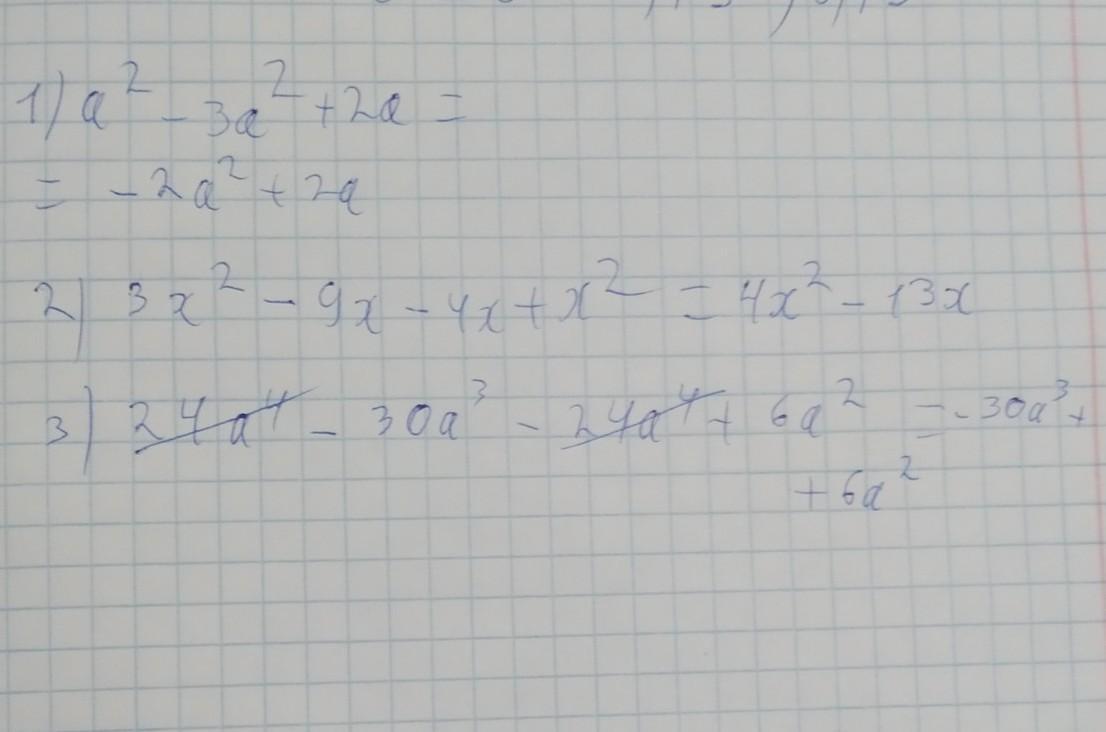 1) a² - 3a² + 2a =
= -2a² + 2a
2) 3x² - 9x - 4x + x² = 4x² - 13x
3) 24a⁴ - 30a³ - 24a⁴ + 6a² = -30a³ +
+ 6a²